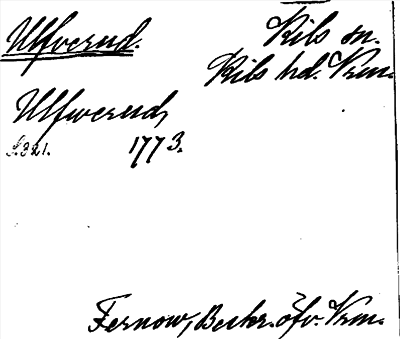 Ulfverud.
Kils sn.
Kils hd. Vrm.
Ulfwerud,
S. 321.
1773.
Fernow, Beskr. öfv. Vrm.